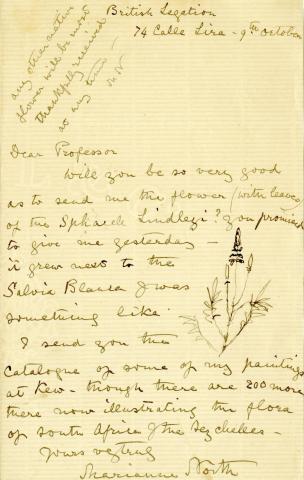 British Legation
74 Calle Lira - 9th October
any other native
flower will be most
thankfully received
at any time -
MN
Dear Professor
Will you be so very good
as to send me the flower (with leaves)
of the Sphacele Lindleyi? you promised
to give me yesterday -
it grew next to the
Salvia Blanca & was
something like.
I send you the
catalogue of some of my paintings
at Kew - though there are 200 more
there now illustrating the flora
of South Africa & the Seychelles -
Yours vy truly
Marianne North